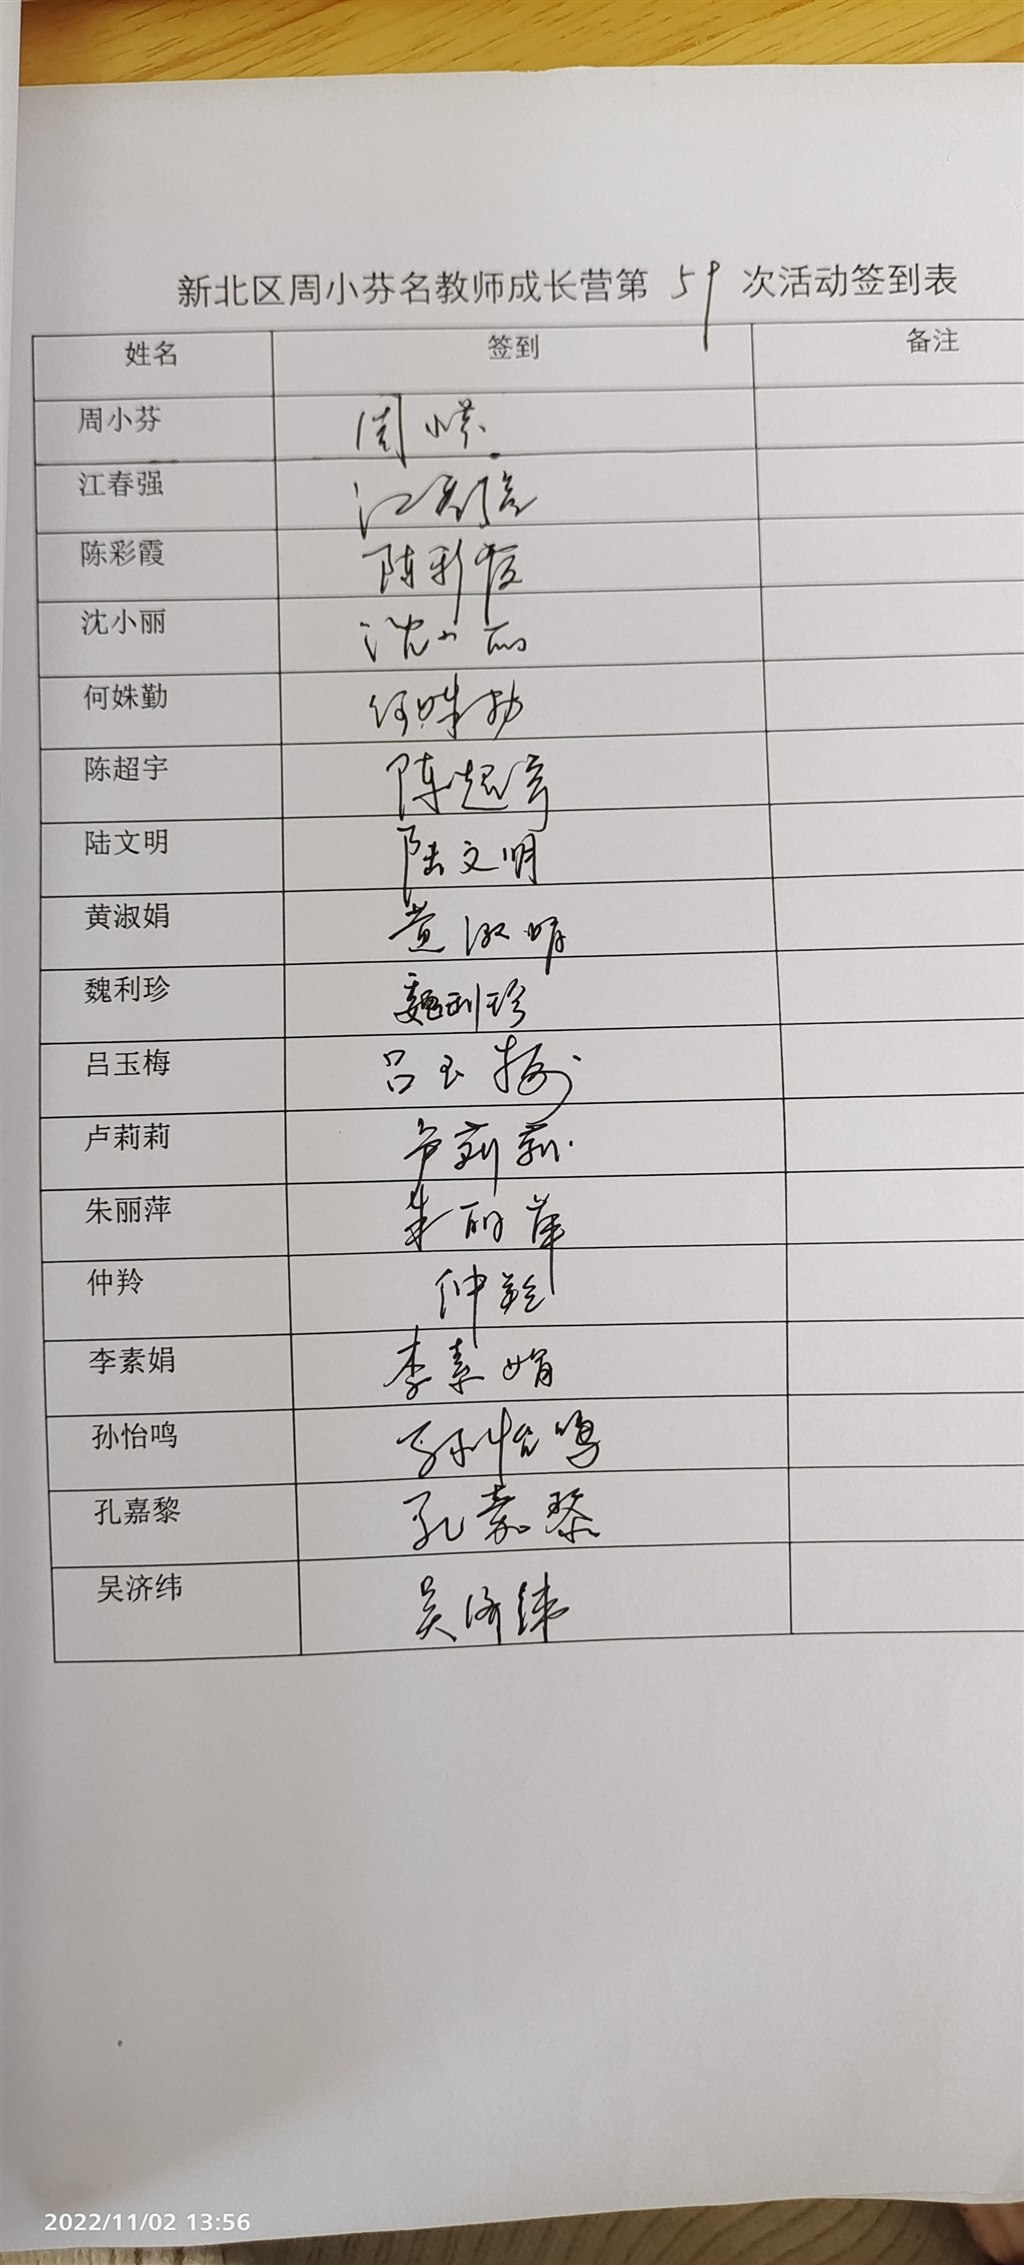 新北区周小芬名教师成长营第 59 次活动签到表
姓名 签到 备注
周小芬 周小芬
江春强 江春强
陈彩霞 陈彩霞
沈小丽 沈小丽
何姝勤 何姝勤
陈超宇 陈超宇
陆文明 陆文明
黄淑娟 黄淑娟
魏利珍 魏利珍
吕玉梅 吕玉梅
卢莉莉 卢莉莉
朱丽萍 朱丽萍
仲羚 仲羚
李素娟 李素娟
孙怡鸣 孙怡鸣
孔嘉黎 孔嘉黎
吴济纬 吴济纬
2022/11/02 13:56